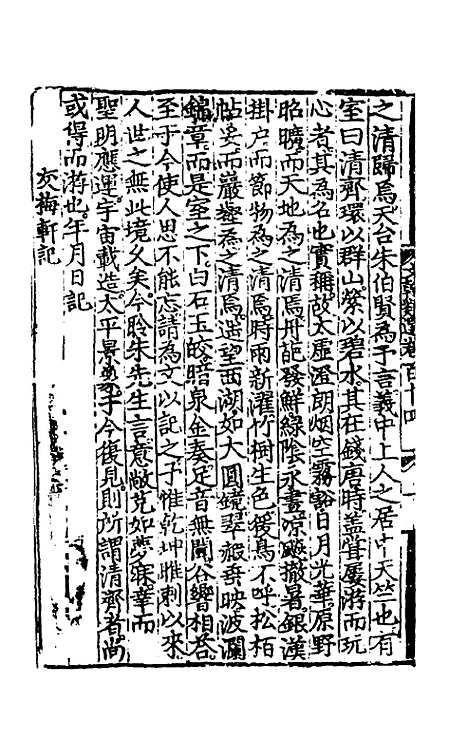 之清歸焉天台朱伯賢為予言義中上人之居中天竺也有
室曰清齊環以群山縈以碧水其在錢唐時蓋甞屢游而玩
心者其為名也實稱故太虛澄朗烟空霧豁日月光華原野
昭曠而天地為之清焉卉葩發鮮綠陰永晝凉飈撤暑銀漢
掛户而節物為之清焉時雨新濯竹樹生色猨鳥不呼松栢
帖妥而巖壑為之清焉遥望西湖如大圓鏡翠被垂映波瀾
錦章而是室之下白石玉皎暗泉金奏足音無聞谷響相荅
至于今使人思不能忘請為文以記之予惟乾坤雕刺以來
人世之無此境久矣今聆朱先生言意敞㒔如夢寐華而
聖明應運宇宙載造太平景象于今復見則所謂清齊者尚
或得而游也年月日記
友梅軒記